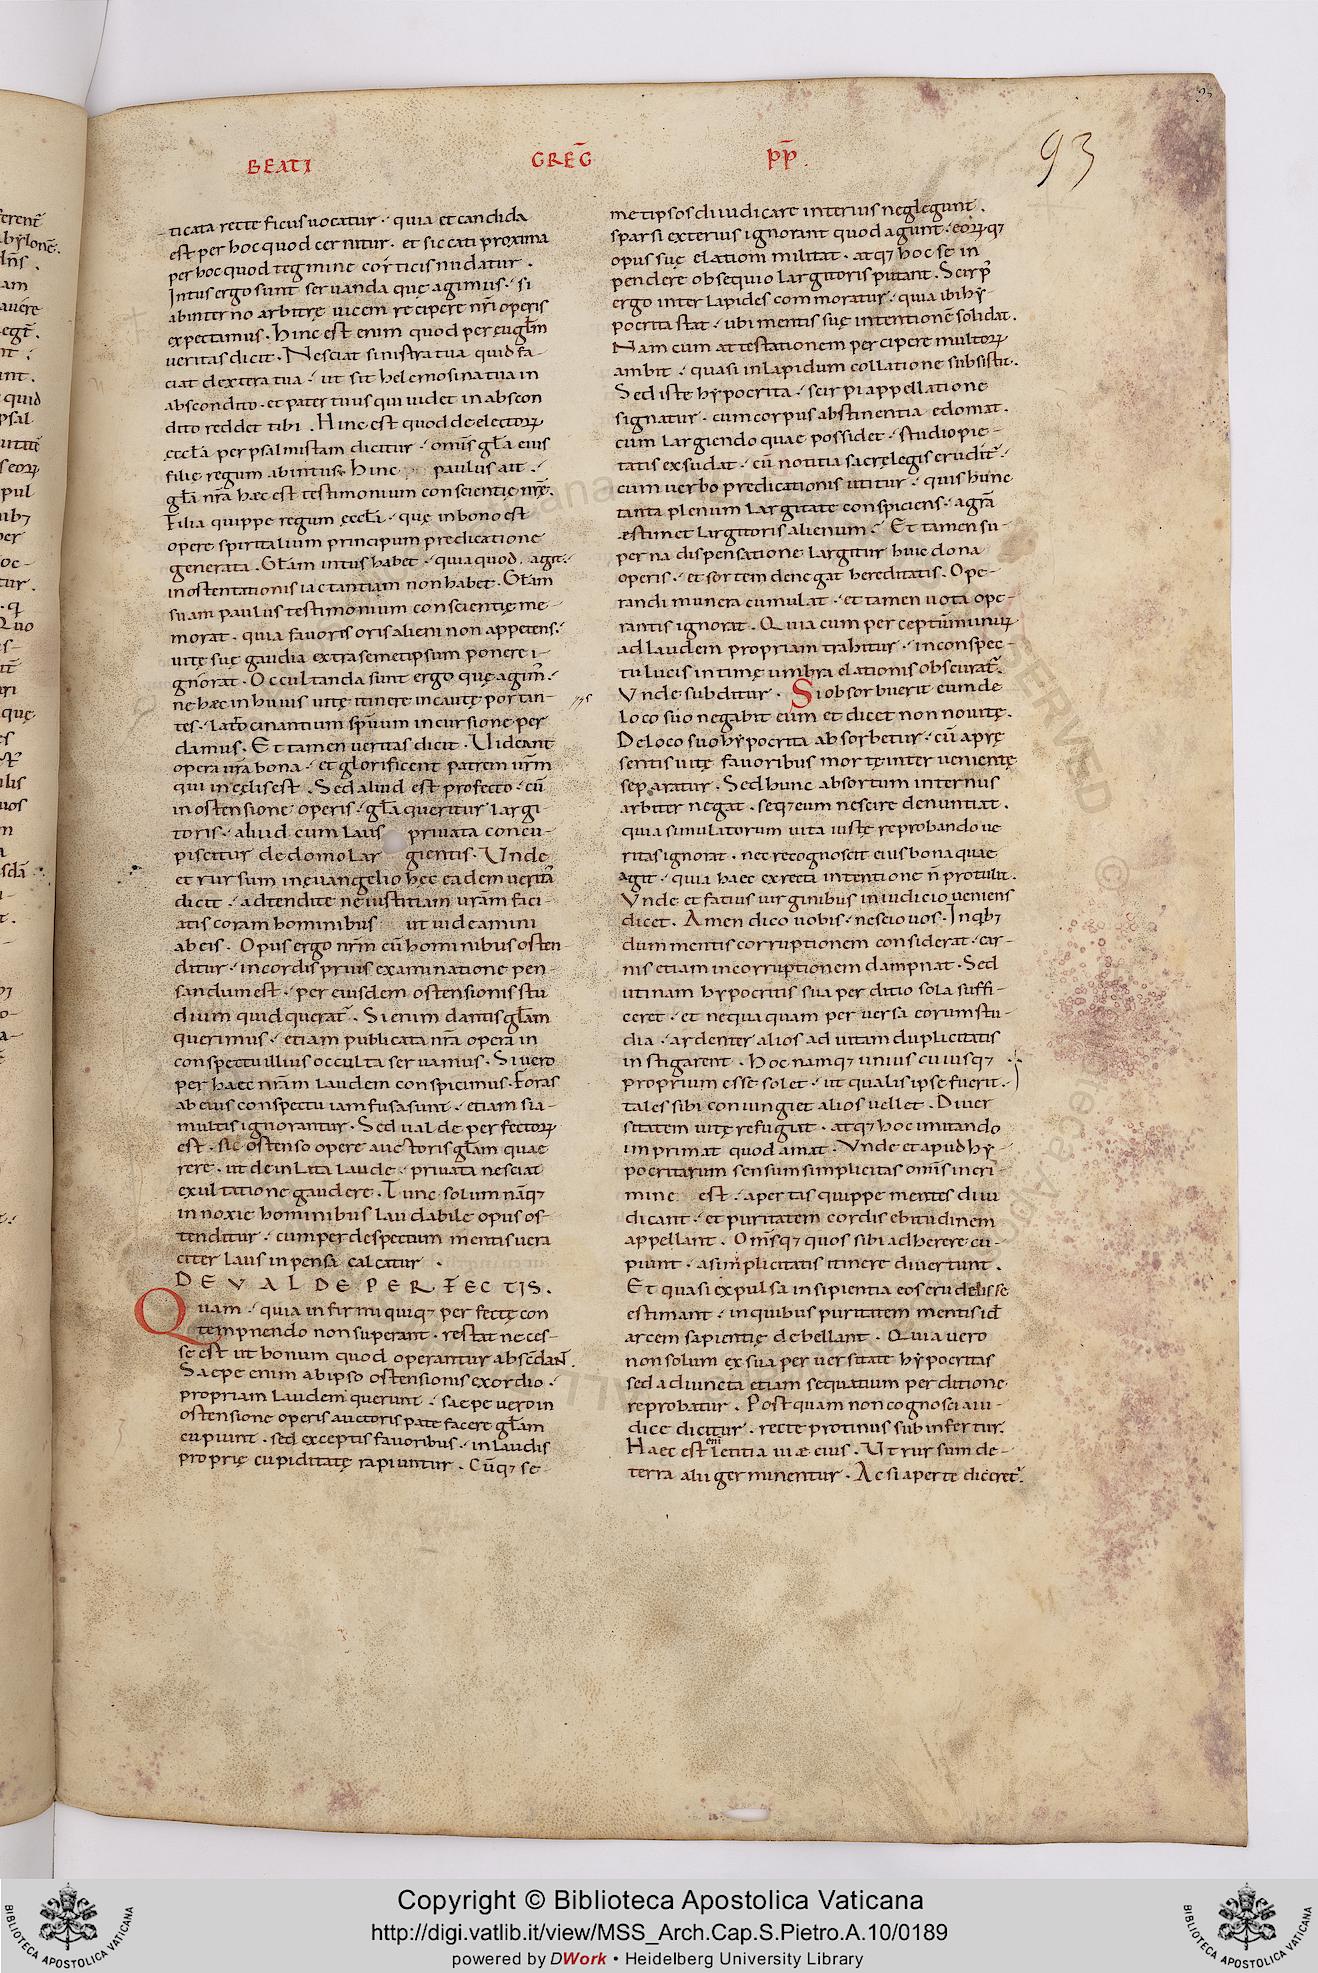 BEATI GREḠ PP̄.
93
ticata recte ficus uocatur · quia et candida
est per hoc quod cernitur · et siccati proxima
per hoc quod tegmine corticis nudatur ·
Intus ergo sunt seruanda quę agimus · si
ab interno arbitrę uicem recipere nr̄i operis
expectamus · Hinc est enim quod per ęuglm̄
ueritas dicit · Nesciat sinistra tua quid fa-
ciat dextera tua · ut sit helemosina tua in
abscondito · et pater tuus qui uidet in abscon
dito reddet tibi . Hinc est quod de electoꝝ
ęccl̄a per psalmistam dicitur · omis̄ gl̄a eius
filię regum ab intus · Hinc paulus ait ·
gl̄a nr̄a hæc est testimonium conscientię nr̄ę ·
Filia quippe regum ęccl̄a · quę in bono est
opere spiritalium principum predicatione
generata . Gl̄am intus habet · quia quod agit ·
in ostentationis iactantiam non habet · Gl̄am
suam paulus testimonium conscientię me-
morat · quia fauoris oris alieni non appetens ·
uitę suę gaudia extra semetipsum ponere i-
gnorat · Occultanda sunt ergo quę agim̄ ·
ne hæc in huius uitę itinere incautę portan-
tes · latrocinantium spūum incursione per
damus · Et tamen ueritas dicit · Uideant
opera ur̄a bona · et glorificent patrem ur̄m
qui in cęlis est . Sed aliud est profecto · cū
in ostensione operis · gl̄a queritur largi
toris · aliud cum laus priuata concu-
piscitur de dono lar gientis · Unde
et rursum in ęuangelio hęc eadem uerita
dicit · adtendite ne iustitiam ur̄am faci-
atis coram hominibus ut uideamini
ab eis . Opus ergo nr̄m cū hominibus osten
ditur · in cordis prius examinatione pen-
sandum est · per eiusdem ostensionis stu
dium quid querat̄ . Si enim dantis gl̄am
querimus · etiam publicata nr̄a opera in
conspectu illius occulta seruamus · Si uero
per haec nr̄am laudem conspicimus · Foras
ab eius conspectu iam fusa sunt · etiam si a-
multis ignorantur · Sed ualde perfectoꝝ
est · sic ostenso opere auctoris gl̄am quae
rere · ut de inlata laude · priuata nesciat
exultatione gaudere . Tunc solum nāq;
innoxie hominibus laudabile opus os-
tenditur · cum per despectum mentis uera
citer laus inpensa calcatur ·
DE VALDE PERFECTIS.
Quam · quia infirmi quiq; perfectę con
tempnendo non superant · restat neces-
se est ut bonum quod operantur abscdan̄ .
Saepe enim ab ipso ostensionis exordio ·
propriam laudem querunt · saepe uero in
ostensione operis auctoris patefacere gl̄am
cupiunt · sed exceptis fauoribus · in laudis
proprię cupiditatę rapiuntur . Cūq; se-
metipsos diiudicare interius neglegunt .
sparsi exterius ignorant quod agunt · eoꝝ q;
opus suę elationi militat · atq; hoc se in
pendere obsequio largitoris putant . Scirp̄
ergo inter lapides commoratur · quia ibi hy-
pocrita stat · ubi mentis suę intentionē solidat .
Nam cum attestationem percipere multoꝝ
ambit · quasi in lapidum collatione subsistit ·
Sed iste hypocrita · scirpi appellatione
signatur · cum corpus abstinentia edomat .
cum largiendo quae possidet · studio pie-
tatis exsudat · cū notitia sacrę legis erudit̄ ·
cum uerbo predicationis utitur · quis hunc
tanta plenum largitate conspiciens · a gr̄a
æstimet largitoris alienum · Et tamen su-
perna dispensatione largitur huic dona
operis · et sortem denegat hereditatis . Ope-
randi munera cumulat · et tamen uota ope-
rantis ignorat . Quia cum perceptum munꝰ
ad laudem propriam trahitur · in conspec-
tu lucis intimę umbra elationis obscurat̄ .
Vnde subditur · Si obsorbuerit eum de
loco suo negabit eum et dicet non noui te .
De loco suo hypocrita absorbetur · cū a prę
sentis uitę fauoribus mortę interuenientę
separatur . Sed hunc absortum internus
arbiter negat · seq; eum nescire denuntiat .
quia simulatorum uita iustę reprobando ue
ritas ignorat · nec recognoscit eius bona quae
agit · quia haec ex recta intentione n̄ protulit .
Vnde et fatuis uirginibus in iudicio ueniens
dicet . Amen dico uobis · nescio uos · In qib;
dum mentis corruptionem considerat · car-
nis etiam incorruptionem dampnat · Sed
utinam hypocritis sua perditio sola suffi-
ceret · et nequaquam peruersa eorum stu-
dia · ardenter alios ad uitam duplicitatis
instigarent · hoc namq; unius cuiusq;
proprium esse solet · ut qualis ipse fuerit ·
tales sibi coniungi et alios uellet . Diuer
sitatem uitę refugiat · atq; hoc imitando
imprimat quod amat · Vnde et apud hy-
pocritarum sensum simplicitas omīs in cri
mine est · apertas quippe mentes diiu
dicant · et puritatem cordis ebitudinem
appellant . Om̄sq; quos sibi adherere cu-
piunt · a simplicitatis itinere diuertunt .
Et quasi expulsa insipientia eos erudisse
estimant · in quibus puritatem mentis id
arcem sapientię debellant . Quia uero
non solum ex sua peruersitate hypocritas
sed adiuncta etiam sequatium perditione
reprobatur . Postquam non cognosci a iu-
dice dicitur · recte protinus subinfertur .
Haec est enī lętitia uiæ eius . Vt rursum de-
terra alii germinentur . Ac si aperte diceret̄ .
Copyright © Biblioteca Apostolica Vaticana
http://digi.vatlib.it/view/MSS_Arch.Cap.S.Pietro.A.10/0189
powered by DWork • Heidelberg University Library
BIBLIOTECA APOSTOLICA VATICANA
BIBLIOTECA APOSTOLICA VATICANA